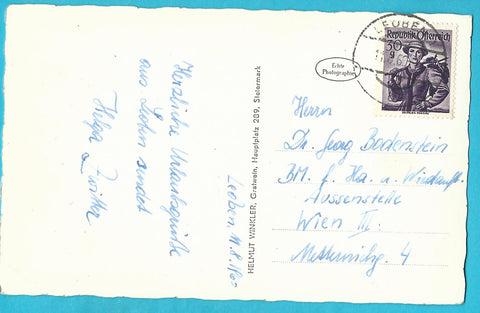 Herzliche Urlaubsgrüße
aus Leoben sendet
Helga
Leoben, 11.8.1962
HELMUT WINKLER, Gratwein, Hauptplatz 209, Steiermark
Echte
Photographie
LEOBEN
Republik Österreich
30
g
Herrn
Dr. Georg Bodenstein
BM. f. Ha. u. Wiederaufb.
Aussenstelle
Wien III.
Metternichg. 4